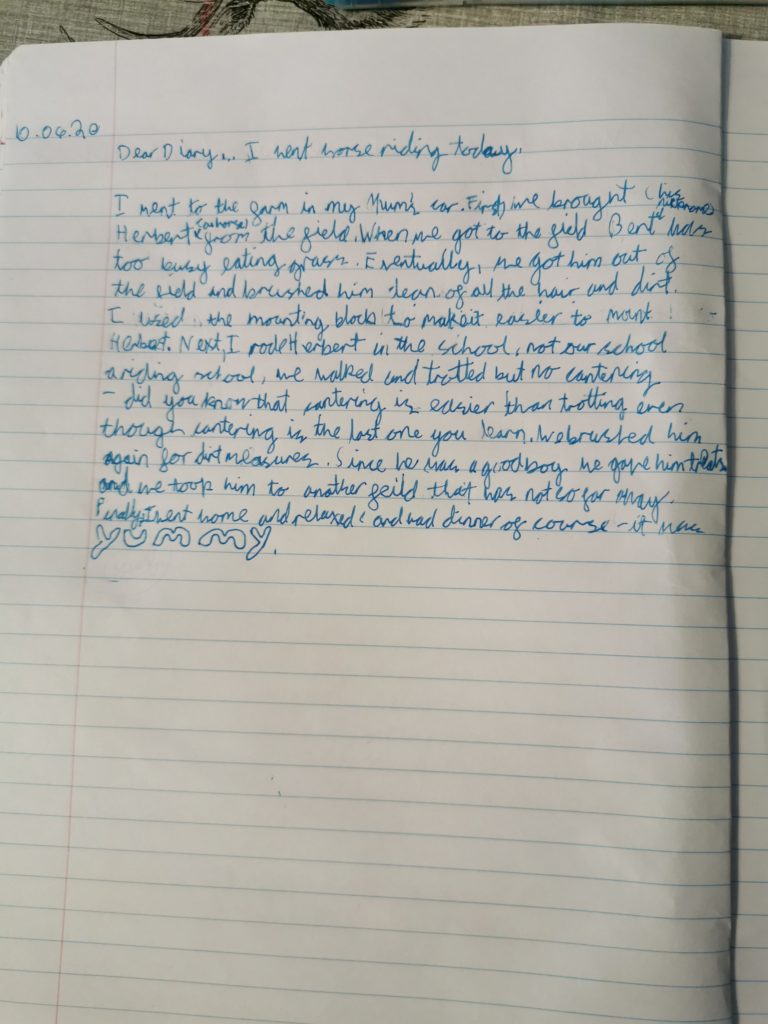 10.06.20
Dear Diary... I went horse riding today.
I went to the farm in my Mum's car. First, we brought (his nickname)
Herbert (our horse) from the field. When we got to the field Bert was
too busy eating grass. Eventually, we got him out of
the field and brushed him clean of all the hair and dirt.
I used the mounting block to make it easier to mount
Herbert. Next, I rode Herbert in the school, not our school
a riding school, we walked and trotted but no cantering
- did you know that cantering is easier than trotting even
though cantering is the last one you learn. We brushed him
again for dirt measures. Since he was a good boy we gave him treats
and we took him to another feild that was not so far away.
Finally, I went home and relaxed! and had dinner of course - it was
yummy.